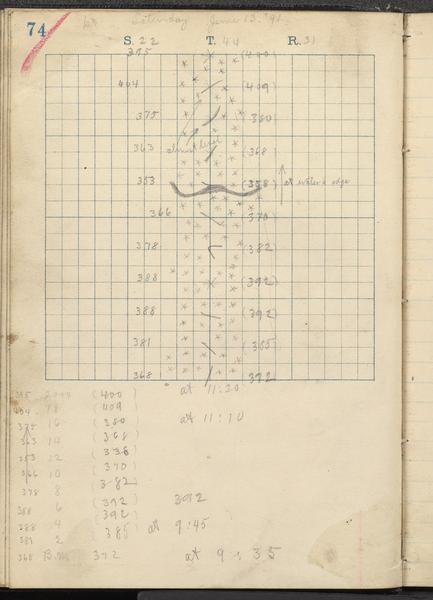 74
Saturday June 13. '91.
S. 22 T. 44 R. 31
395 (400)
404 (409)
375 (380)
363 (368)
353 (358) at water's edge
366 (370)
378 (382)
388 (392)
388 (392)
381 (385)
368 (372)
395 (400) at 11:20
404 18 (409)
375 16 (380) at 11:10
363 14 (368)
353 12 (358)
366 10 (370)
378 8 (382)
388 6 (392) 392
388 4 (392)
381 2 385 at 9:45
368 B.M. 372 at 9:35